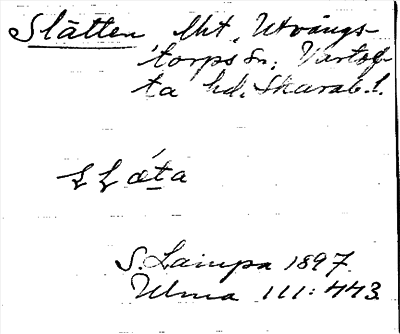 Slätten lht, Utvängs-
torps sn, Vartof-
ta hd, Skarab. l.
S. Lampa 1897.
Ulma 111:443.